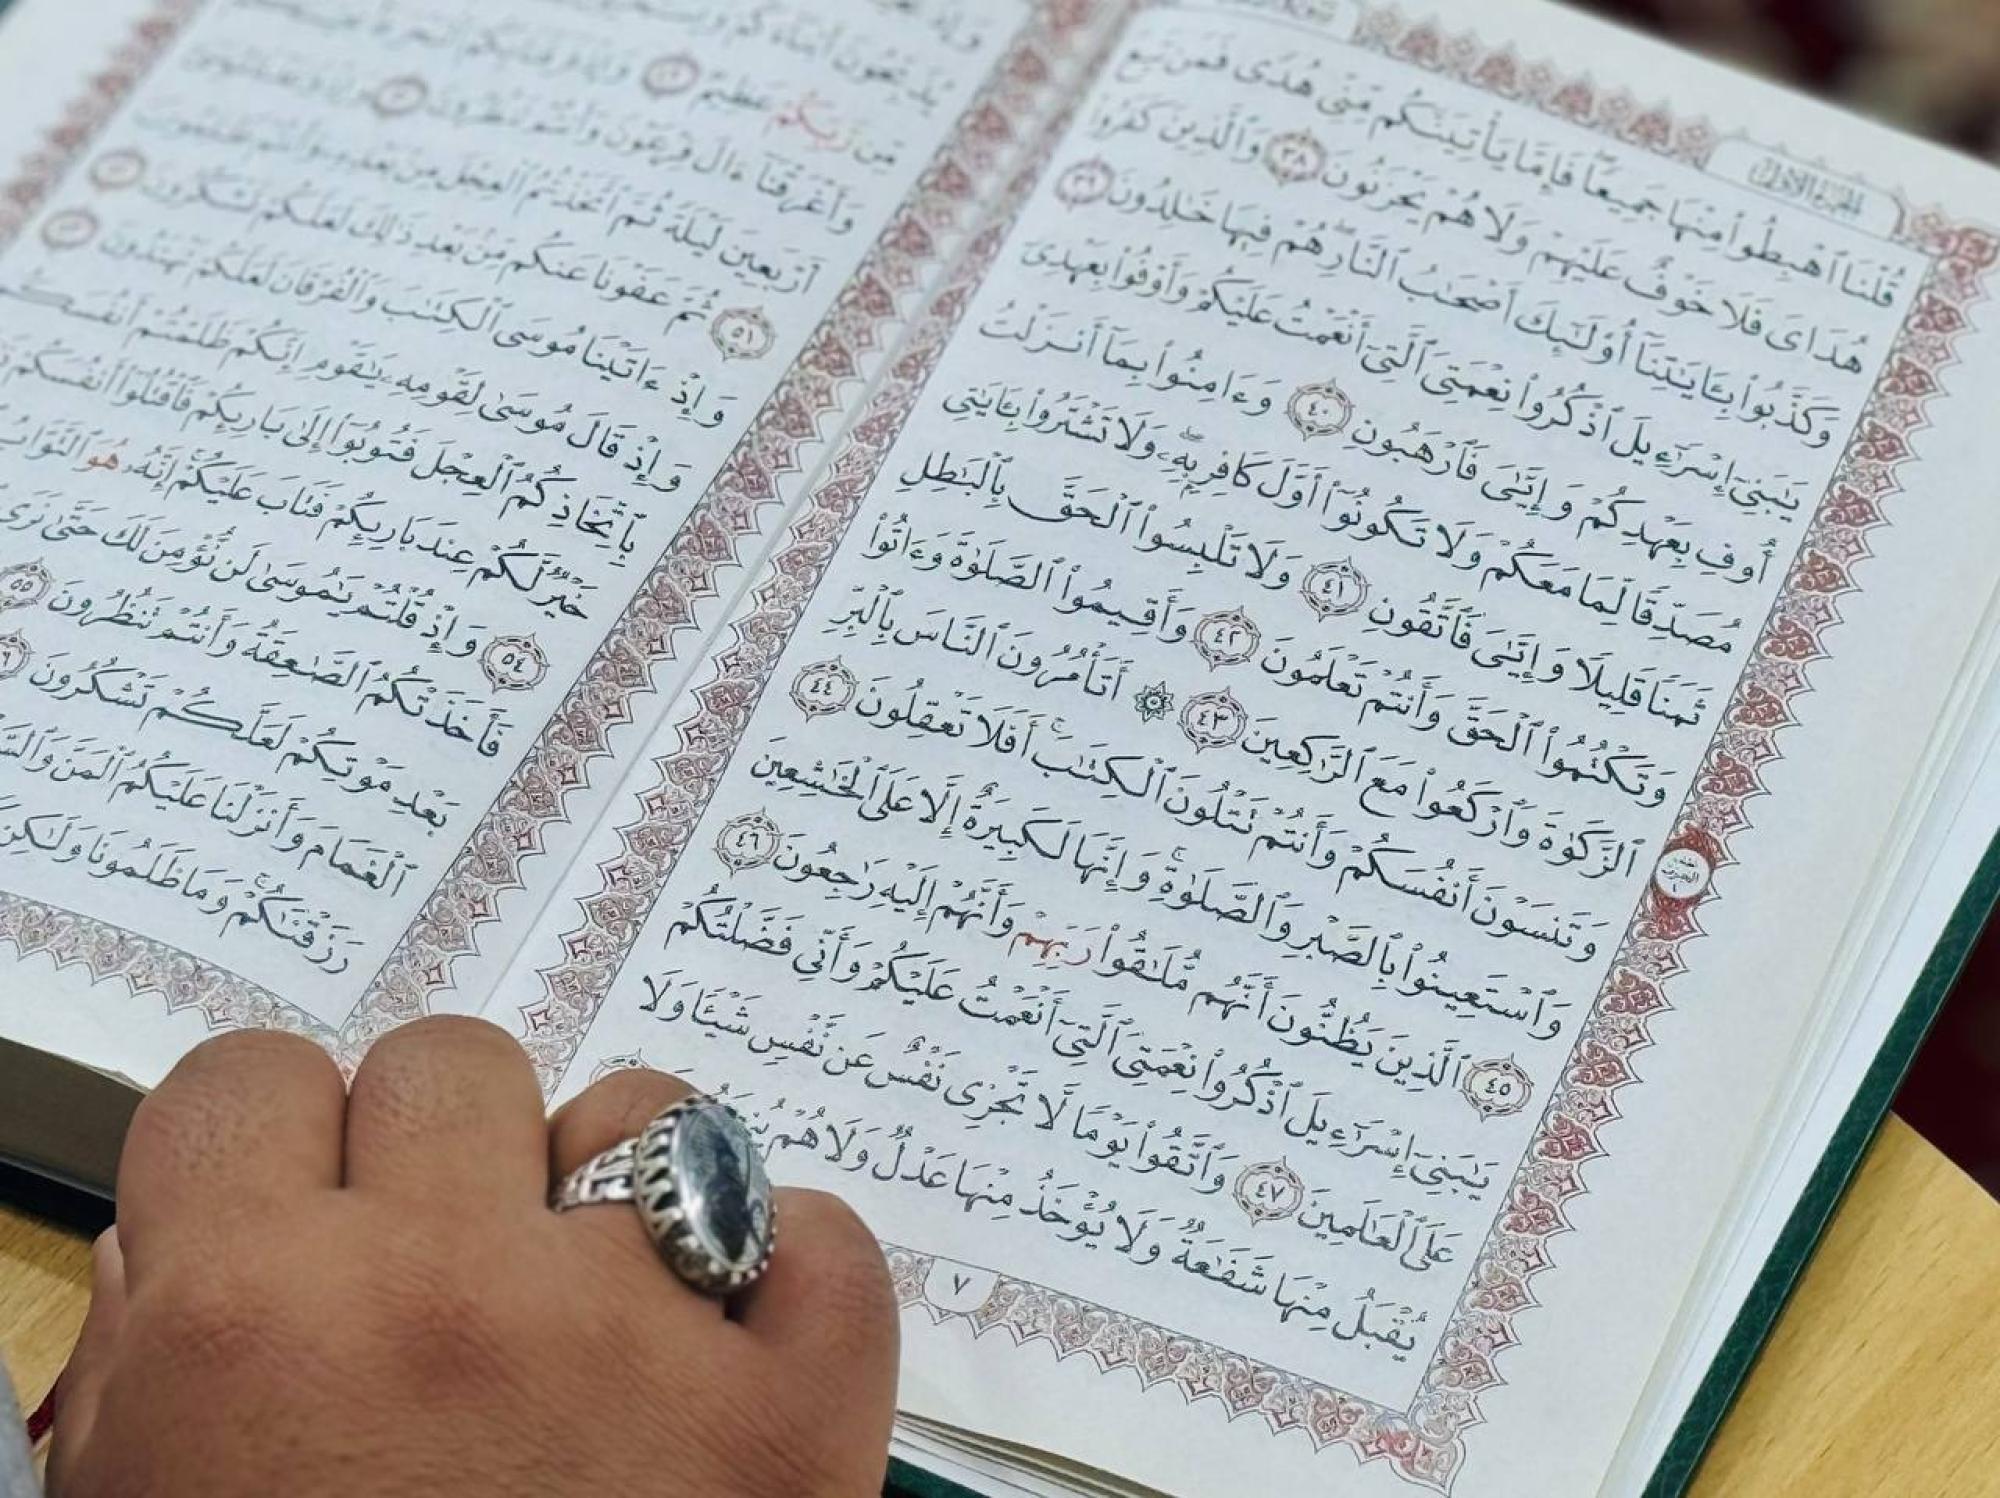 الجزء الأول
قُلْنَا ٱهْبِطُوا۟ مِنْهَا جَمِيعًا فَإِمَّا يَأْتِيَنَّكُم مِّنِّى هُدًى فَمَن تَبِعَ
هُدَاىَ فَلَا خَوْفٌ عَلَيْهِمْ وَلَا هُمْ يَحْزَنُونَ ٣٨ وَٱلَّذِينَ كَفَرُوا۟
وَكَذَّبُوا۟ بِـَٔايَـٰتِنَآ أُو۟لَـٰٓئِكَ أَصْحَـٰبُ ٱلنَّارِ هُمْ فِيهَا خَـٰلِدُونَ ٣٩
يَـٰبَنِىٓ إِسْرَٰٓءِيلَ ٱذْكُرُوا۟ نِعْمَتِىَ ٱلَّتِىٓ أَنْعَمْتُ عَلَيْكُمْ وَأَوْفُوا۟ بِعَهْدِىٓ
أُوفِ بِعَهْدِكُمْ وَإِيَّـٰىَ فَٱرْهَبُونِ ٤٠ وَءَامِنُوا۟ بِمَآ أَنزَلْتُ
مُصَدِّقًا لِّمَا مَعَكُمْ وَلَا تَكُونُوٓا۟ أَوَّلَ كَافِرٍۭ بِهِۦ وَلَا تَشْتَرُوا۟ بِـَٔايَـٰتِى
ثَمَنًا قَلِيلًا وَإِيَّـٰىَ فَٱتَّقُونِ ٤١ وَلَا تَلْبِسُوا۟ ٱلْحَقَّ بِٱلْبَـٰطِلِ
وَتَكْتُمُوا۟ ٱلْحَقَّ وَأَنتُمْ تَعْلَمُونَ ٤٢ وَأَقِيمُوا۟ ٱلصَّلَوٰةَ وَءَاتُوا۟
ٱلزَّكَوٰةَ وَٱرْكَعُوا۟ مَعَ ٱلرَّٰكِعِينَ ٤٣ ۞ أَتَأْمُرُونَ ٱلنَّاسَ بِٱلْبِرِّ
وَتَنسَوْنَ أَنفُسَكُمْ وَأَنتُمْ تَتْلُونَ ٱلْكِتَـٰبَ ۚ أَفَلَا تَعْقِلُونَ ٤٤
وَٱسْتَعِينُوا۟ بِٱلصَّبْرِ وَٱلصَّلَوٰةِ ۚ وَإِنَّهَا لَكَبِيرَةٌ إِلَّا عَلَى ٱلْخَـٰشِعِينَ
٤٥ ٱلَّذِينَ يَظُنُّونَ أَنَّهُم مُّلَـٰقُوا۟ رَبِّهِمْ وَأَنَّهُمْ إِلَيْهِ رَٰجِعُونَ ٤٦
يَـٰبَنِىٓ إِسْرَٰٓءِيلَ ٱذْكُرُوا۟ نِعْمَتِىَ ٱلَّتِىٓ أَنْعَمْتُ عَلَيْكُمْ وَأَنِّى فَضَّلْتُكُمْ
عَلَى ٱلْعَـٰلَمِينَ ٤٧ وَٱتَّقُوا۟ يَوْمًا لَّا تَجْزِى نَفْسٌ عَن نَّفْسٍ شَيْـًٔا وَلَا
يُقْبَلُ مِنْهَا شَفَـٰعَةٌ وَلَا يُؤْخَذُ مِنْهَا عَدْلٌ وَلَا هُمْ
٧
مِّن رَّبِّكُمْ عَظِيمٌ
وَأَغْرَقْنَآ ءَالَ فِرْعَوْنَ وَأَنتُمْ تَنظُرُونَ
أَرْبَعِينَ لَيْلَةً ثُمَّ ٱتَّخَذْتُمُ ٱلْعِجْلَ مِنۢ بَعْدِهِۦ وَأَنتُمْ ظَـٰلِمُونَ
٥١ ثُمَّ عَفَوْنَا عَنكُم مِّنۢ بَعْدِ ذَٰلِكَ لَعَلَّكُمْ تَشْكُرُونَ
وَإِذْ ءَاتَيْنَا مُوسَى ٱلْكِتَـٰبَ وَٱلْفُرْقَانَ لَعَلَّكُمْ تَهْتَدُونَ
وَإِذْ قَالَ مُوسَىٰ لِقَوْمِهِۦ يَـٰقَوْمِ إِنَّكُمْ ظَلَمْتُمْ
بِٱتِّخَاذِكُمُ ٱلْعِجْلَ فَتُوبُوٓا۟ إِلَىٰ بَارِئِكُمْ فَٱقْتُلُوٓا۟ أَنفُسَكُمْ
خَيْرٌ لَّكُمْ عِندَ بَارِئِكُمْ فَتَابَ عَلَيْكُمْ ۚ إِنَّهُۥ هُوَ ٱلتَّوَّابُ
٥٤ وَإِذْ قُلْتُمْ يَـٰمُوسَىٰ لَن نُّؤْمِنَ لَكَ حَتَّىٰ نَرَى
فَأَخَذَتْكُمُ ٱلصَّـٰعِقَةُ وَأَنتُمْ تَنظُرُونَ ٥٥
بَعْدِ مَوْتِكُمْ لَعَلَّكُمْ تَشْكُرُونَ
ٱلْغَمَامَ وَأَنزَلْنَا عَلَيْكُمُ ٱلْمَنَّ
رَزَقْنَـٰكُمْ ۖ وَمَا ظَلَمُونَا وَلَـٰكِن